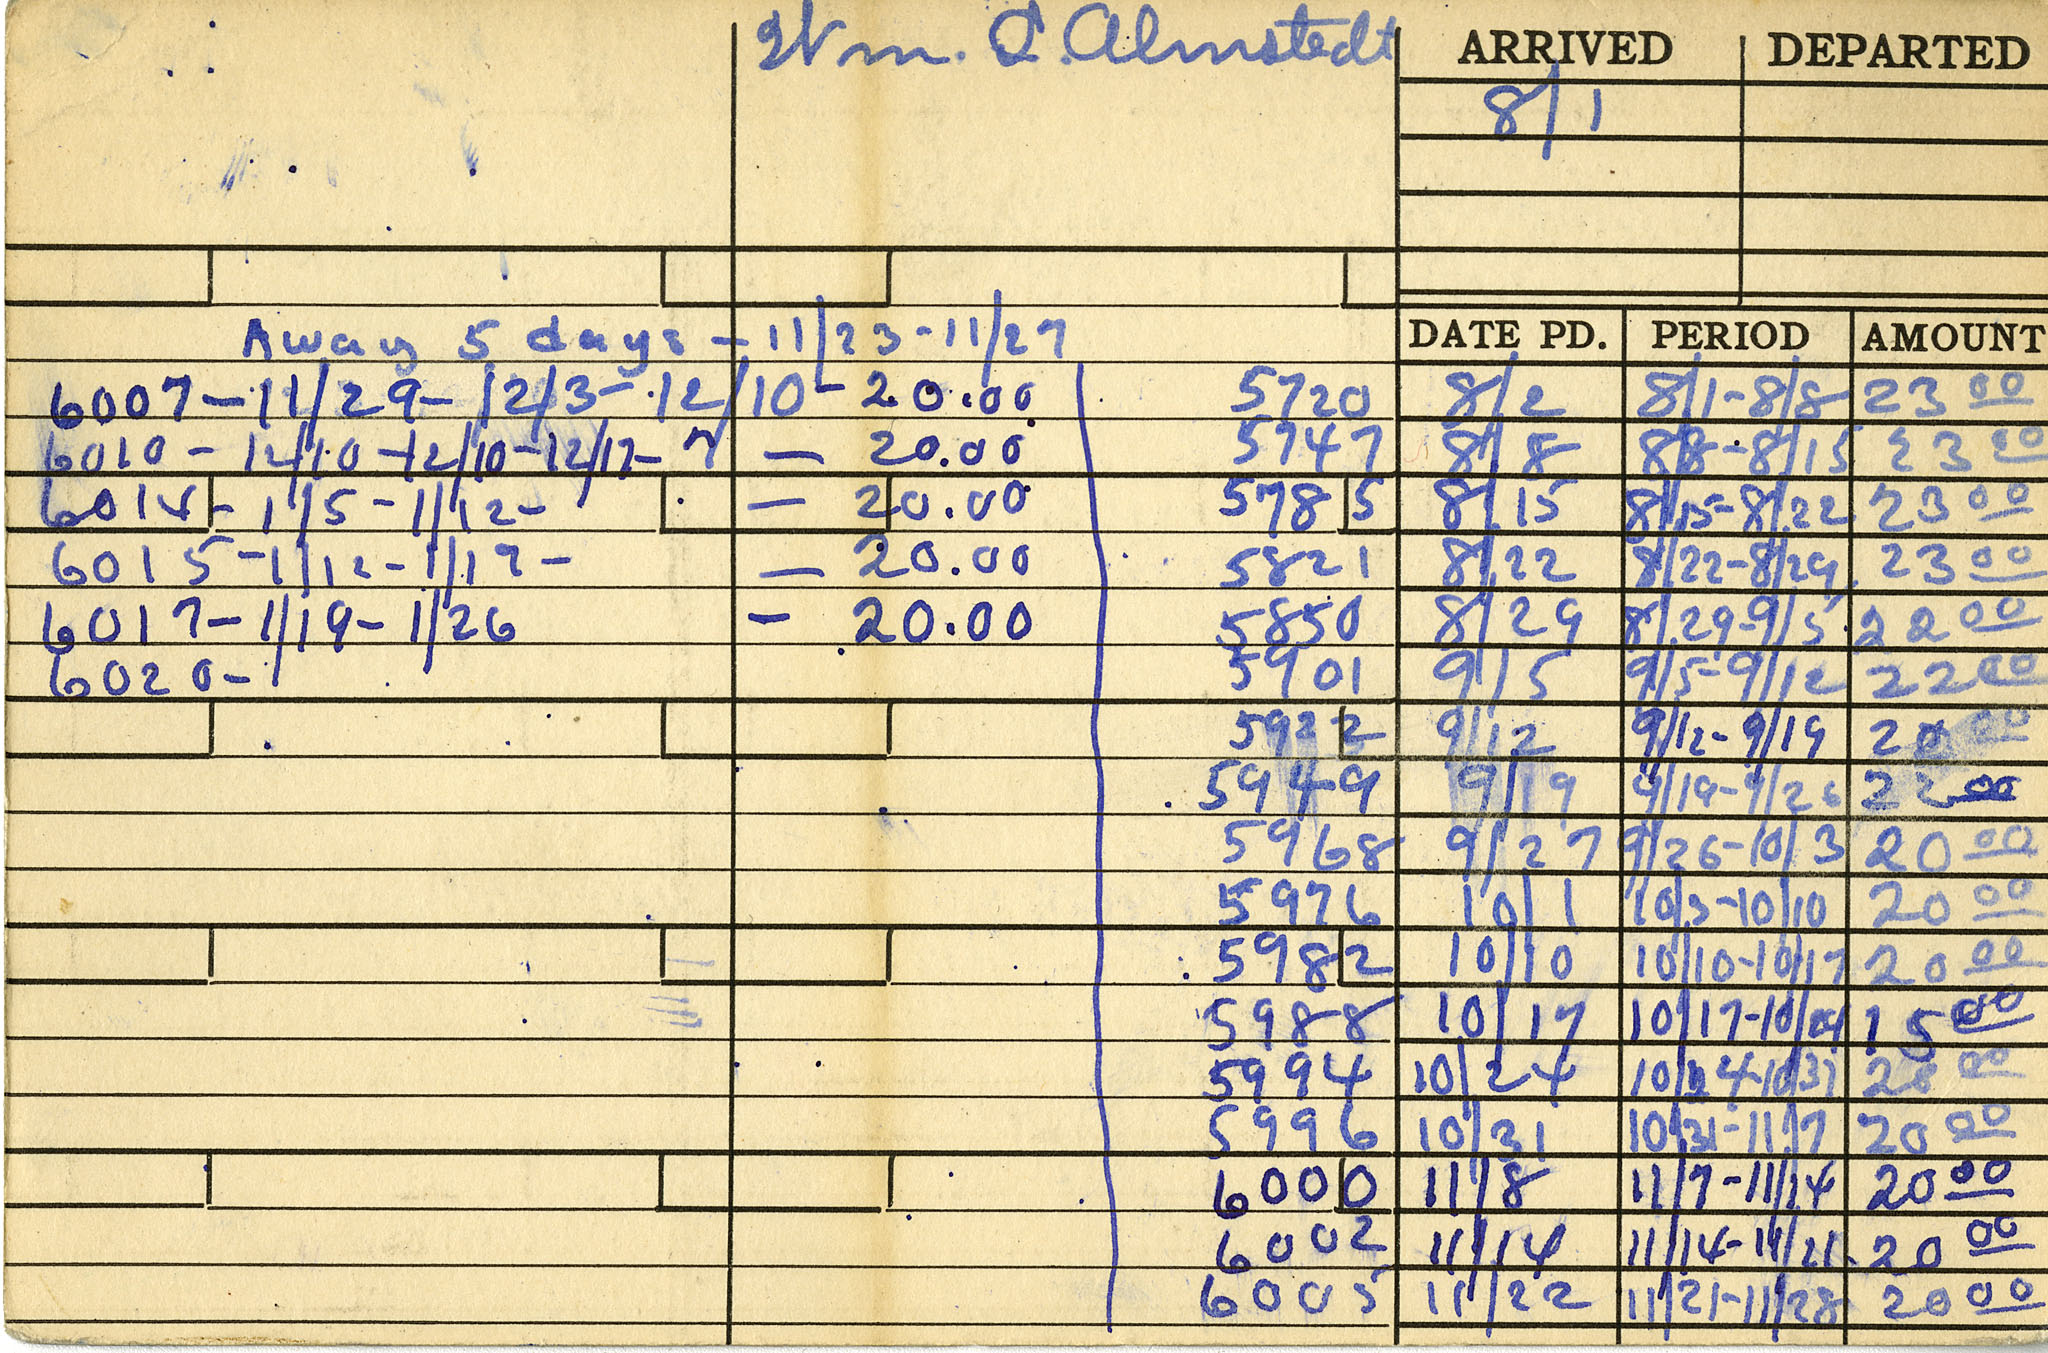 Wm. C. Almstedt
ARRIVED DEPARTED
8/1
Away 5 days - 11/23 - 11/27
DATE PD. PERIOD AMOUNT
6007 - 11/29 - 12/3 - 12/10 - 20.00
6010 - 12/10 - 12/10 - 12/17 - 7 — 20.00
6014 - 1/5 - 1/12 - — 20.00
6015 - 1/12 - 1/19 - — 20.00
6017 - 1/19 - 1/26 - 20.00
6020 -
5720 8/2 8/1-8/8 23 00
5747 8/8 8/8-8/15 23 00
5785 8/15 8/15-8/22 23 00
5821 8/22 8/22-8/29 23 00
5850 8/29 8/29-9/5 22 00
5901 9/5 9/5-9/12 22 00
5922 9/12 9/12-9/19 20 00
5949 9/19 9/19-9/26 22 00
5968 9/27 9/26-10/3 20 00
5976 10/1 10/3-10/10 20 00
5982 10/10 10/10-10/17 20 00
5988 10/17 10/17-10/24 15 00
5994 10/24 10/24-10/31 20 00
5996 10/31 10/31-11/7 20 00
6000 11/8 11/7-11/14 20 00
6002 11/14 11/14-11/21 20 00
6005 11/22 11/21-11/28 20 00